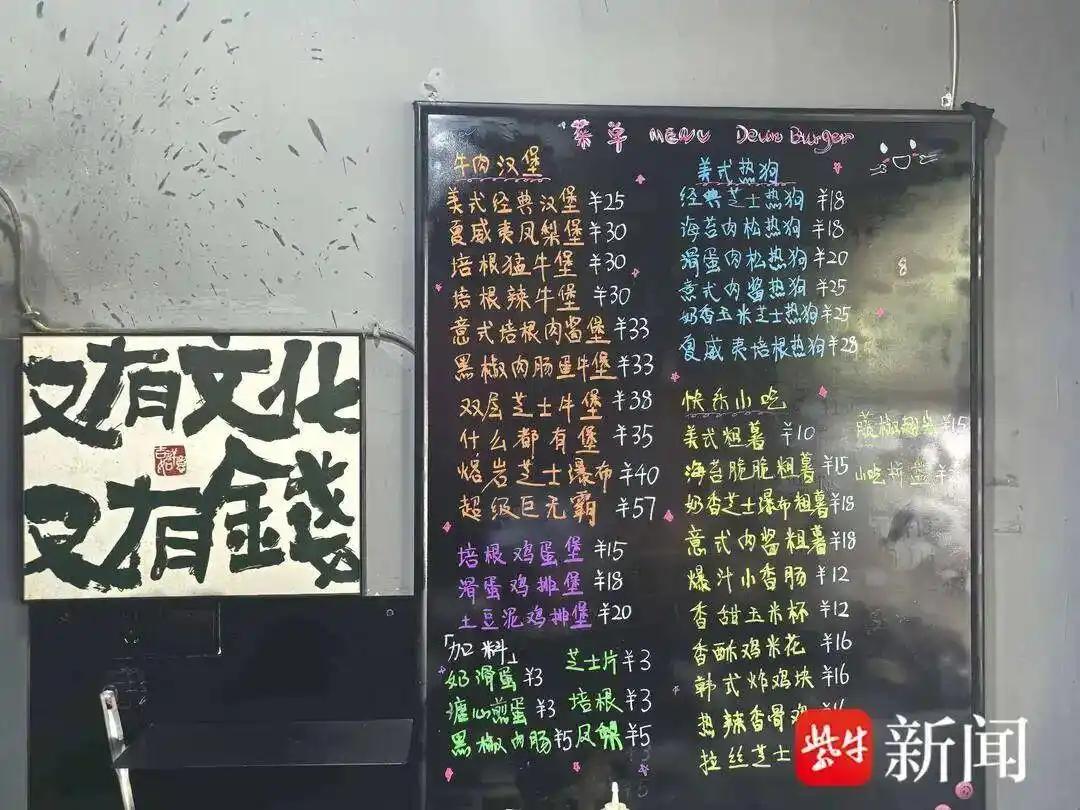 菜单 MENU Down Burger
牛肉汉堡
美式经典汉堡 ¥25
夏威夷凤梨堡 ¥30
培根猛牛堡 ¥30
培根辣牛堡 ¥30
意式培根肉酱堡 ¥33
黑椒肉肠蛋牛堡 ¥33
双层芝士牛堡 ¥38
什么都有堡 ¥35
熔岩芝士瀑布 ¥40
超级巨无霸 ¥57
培根鸡蛋堡 ¥15
滑蛋鸡排堡 ¥18
土豆泥鸡排堡 ¥20
「加料」
奶滑蛋 ¥3 芝士片 ¥3
溏心煎蛋 ¥3 培根 ¥3
黑椒肉肠 ¥5 凤梨 ¥5
美式热狗
经典芝士热狗 ¥18
海苔肉松热狗 ¥18
滑蛋肉松热狗 ¥20
意式肉酱热狗 ¥25
奶香玉米芝士热狗 ¥25
夏威夷培根热狗 ¥28
快乐小吃
美式粗薯 ¥10
海苔脆脆粗薯 ¥15
奶香芝士瀑布粗薯 ¥18
意式肉酱粗薯 ¥18
爆汁小香肠 ¥12
香甜玉米杯 ¥12
香酥鸡米花 ¥16
韩式炸鸡块 ¥16
热辣香骨鸡
拉丝芝士
¥15
小吃拼盘
又有文化
又有錢
紫牛新闻